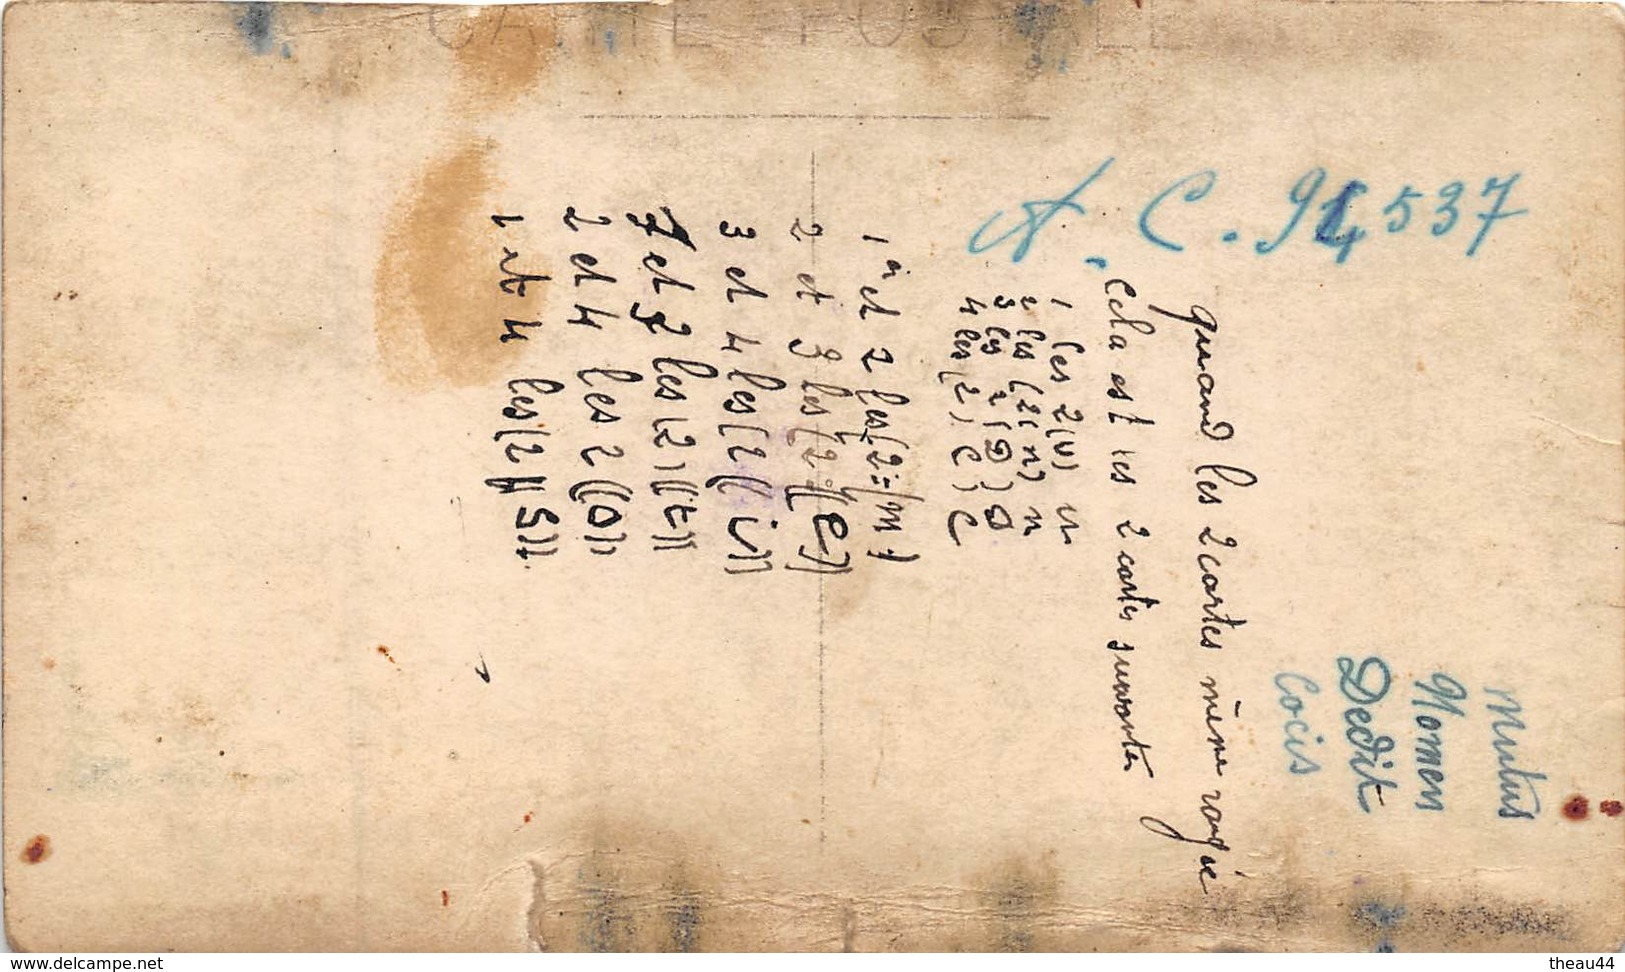 CARTE POSTALE
A. C. 94537
Mutus
Nomen
Dedit
Cocis
quand les 2 cartes même rangée
Cela est les 2 cartes suivantes
1 les 2 (u) u
2 les (2 (n) n
3 les 2 (D) D
4 les (2) C) C
1er et 2 les (2 = (m)
2 et 3 les (2 ((e))
3 et 4 les (2 ((i))
1 et 3 les (2) ((t))
2 et 4 les 2 ((o))
1 et 4 les (2 ((S))
www.delcampe.net
theau44